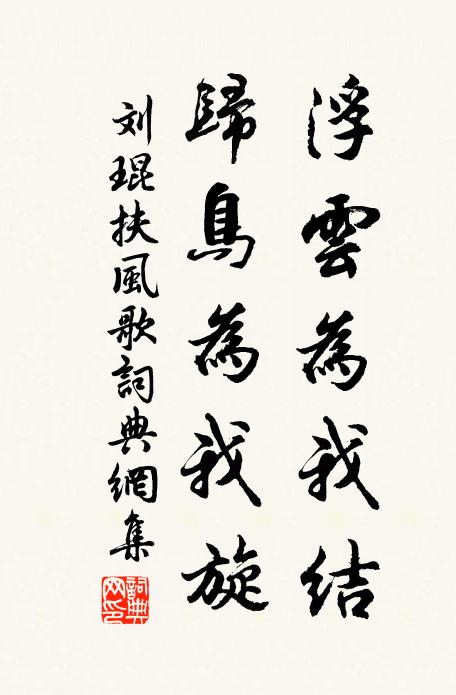 浮雲為我結
歸鳥為我旋
刘琨扶風歌詞典網集
詞典網印